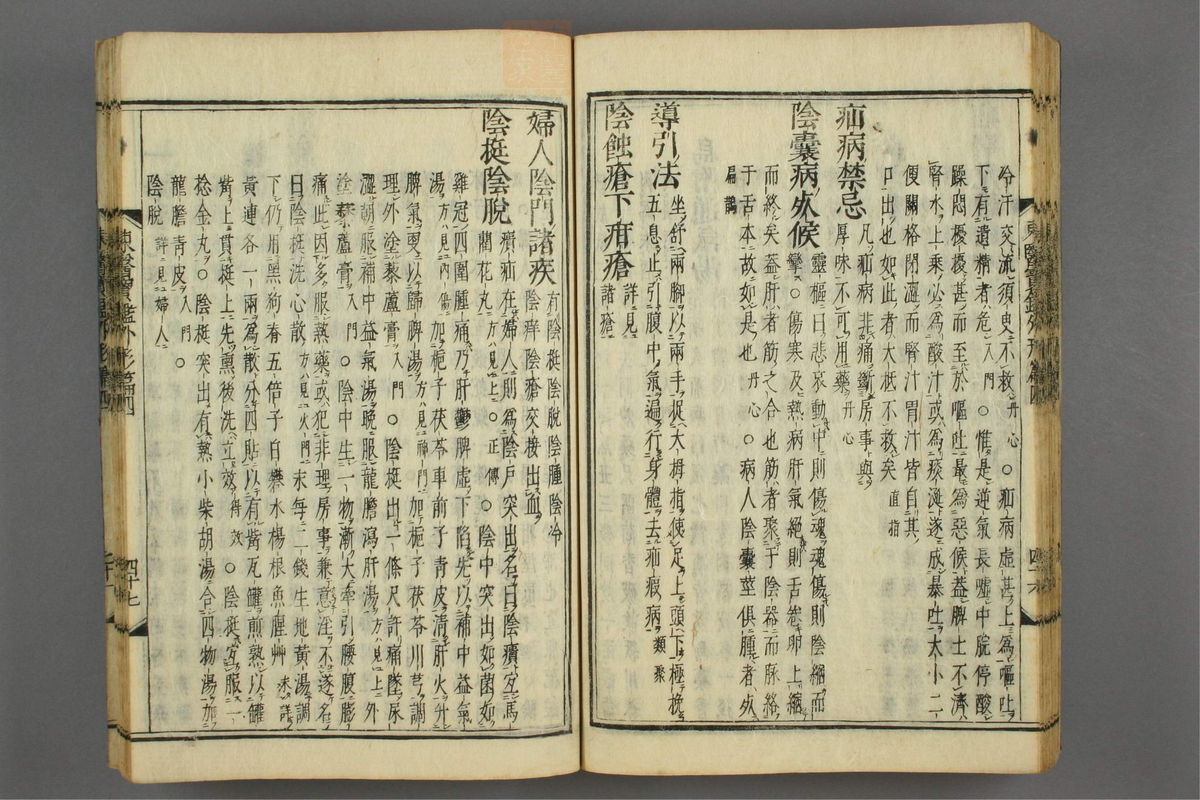 分汗交流須臾不救丹心○疝病虛甚上爲嘔吐
下有遺精者危入門○惟是逆氣長噓中脘停酸
躁悶擾擾甚而至於嘔吐最爲惡候盖脾土不濟
腎水上乘必爲酸汁或爲痰涎遂成暴吐大小二
便關格閉澁而腎汁胃汁皆自其
口出也如此者大柢不救矣直指
疝病禁忌
凡疝病非痛斷房事與
厚味不可用藥丹心
陰囊病死候
靈樞曰悲哀動中則傷魂魂傷則陰縮而
攣○傷寒及熱病肝氣絕則舌卷卵上縮
而終矣盖肝者筋之合也筋者聚于陰器而脉絡
于舌本故如是也丹心○病人陰囊莖俱腫者死
扁鵲
導引法
坐舒兩脚以兩手捉大拇指使足上頭下極挽
五息止引腹中氣遍行身體去疝瘕病類聚
陰蝕瘡下疳瘡
詳見
諸瘡
婦人陰門諸疾
有陰挺陰脫陰腫陰冷
陰痒陰瘡交接出血
陰挺陰脫
㿗疝在婦人則爲陰戶突出名曰陰㿗宜馬
藺花丸方見上○正傳○陰中突出如菌如
雞冠四圍腫痛乃肝鬱脾虛下陷先以補中益氣
湯方見內傷加梔子茯苓車前子靑皮淸肝火升
脾氣更以歸脾湯方見神門加梔子茯苓川芎調
理外塗藜蘆膏入門○陰挺出一條尺許痛墜尿
澁朝服補中益氣湯晚服龍膽瀉肝湯方見上外
塗藜蘆膏入門○陰中生一物漸大牽引腰腹膨
痛此因多服熱藥或犯非理房事兼意淫不遂名
曰陰挺洗心散方見火門末每二錢生地黃湯調
下仍用黑狗脊五倍子白礬水楊根魚腥艸未詳
黃連各一兩爲散分四貼以有觜瓦罐煎熟以罐
觜上貫挺上先熏後洗立效得效○陰挺宜服一
捻金丸○陰挺突出有熱小柴胡湯合四物湯加
龍膽靑皮入門○
陰脫詳見婦人
東醫寶鑑外形篇四
四十七